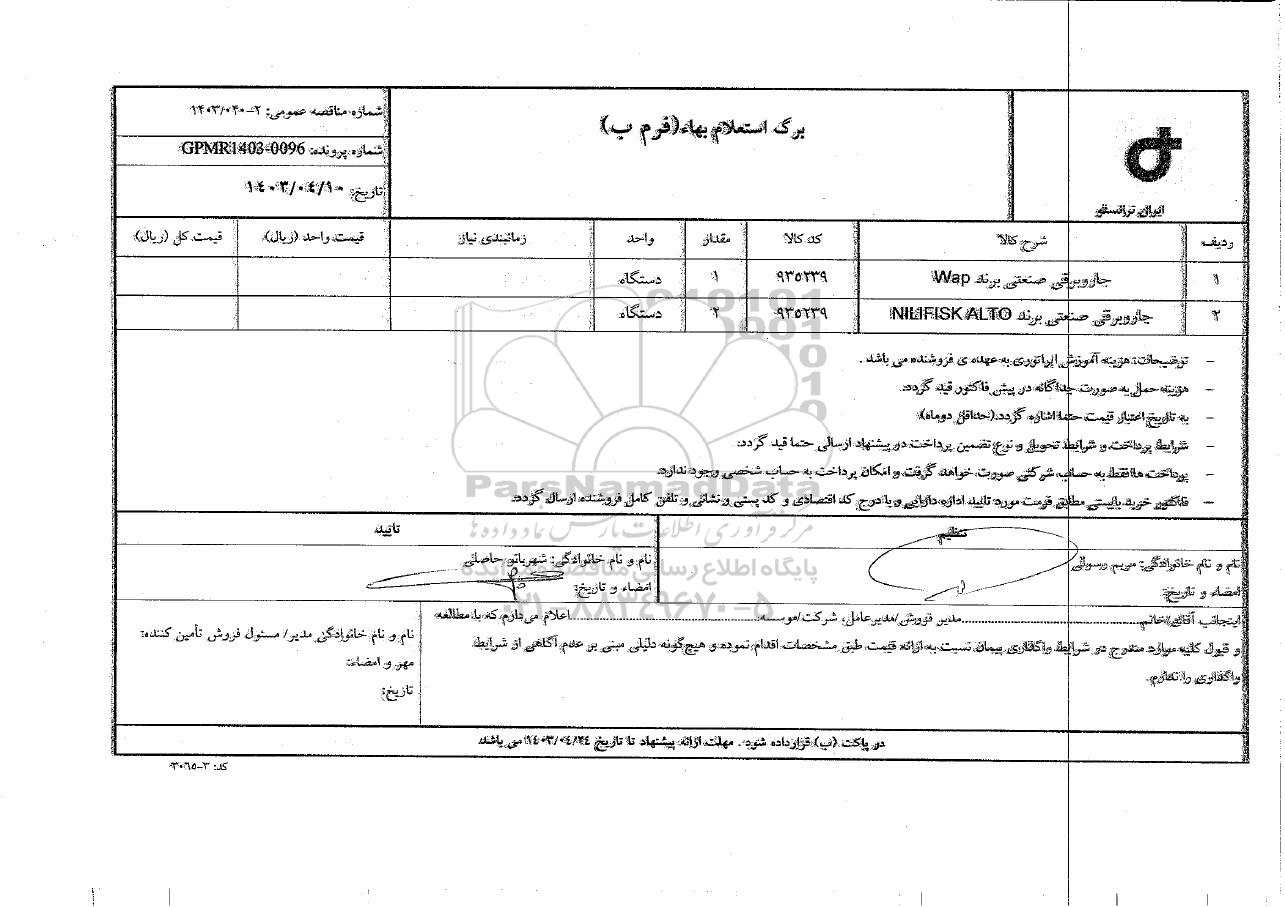 برگ استعلام بهاء(فرم ب)
شماره مناقصه عمومی: ۲-۱۴۰۳/۰۴۰
شماره پرونده: GPMR1403-0096
تاریخ: ۱۴۰۳/۰۴/۱۰
ایران ترانسفو
ردیف شرح کالا کد کالا مقدار واحد زمانبندی نیاز قیمت واحد (ریال) قیمت کل (ریال)
۱ جاروبرقی صنعتی برند Wap ۹۳۵۲۳۹ ۱ دستگاه
۲ جاروبرقی صنعتی برند NILIFISK ALTO ۹۳۵۲۳۹ ۲ دستگاه
- توضیحات: هزینه آموزش اپراتوری به عهده ی فروشنده می باشد .
- هزینه حمل به صورت جداگانه در پیش فاکتور قید گردد.
- به تاریخ اعتبار قیمت حتما اشاره گردد.(حداقل دوماه)
- شرایط پرداخت و شرایط تحویل و نوع تضمین پرداخت در پیشنهاد ارسالی حتما قید گردد.
- پرداخت ها فقط به حساب شرکتی صورت خواهد گرفت و امکان پرداخت به حساب شخصی وجود ندارد.
- فاکتور خرید بایستی مطابق فرمت مورد تایید اداره دارایی و با درج کد اقتصادی و کد پستی و نشانی و تلفن کامل فروشنده ارسال گردد.
ParsNamadData
مرکز فرآوری اطلاعات پارس نماد داده ها
پایگاه اطلاع رسانی مناقصه و مزایده
۰۲۱-۸۸۳۴۹۶۷۰-۵
تنظیم
نام و نام خانوادگی: مریم رسولی
امضاء و تاریخ:
تایید
نام و نام خانوادگی: شهربانو حاصلی
امضاء و تاریخ:
اینجانب آقای/خانم..........مدیر فروش/مدیرعامل، شرکت/موسسه..........اعلام می‌دارم که با مطالعه
و قبول کلیه موارد مندرج در شرایط واگذاری پیمان نسبت به ارائه قیمت طبق مشخصات اقدام نموده و هیچ‌گونه دلیلی مبنی بر عدم آگاهی از شرایط
واگذاری را ندارم.
نام و نام خانوادگی مدیر/ مسئول فروش تأمین کننده:
مهر و امضاء:
تاریخ:
در پاکت (ب) قرارداده شود. مهلت ارائه پیشنهاد تا تاریخ ۱۴۰۳/۰۴/۲۴ می باشد
کد: ۳-۳۰۶۵